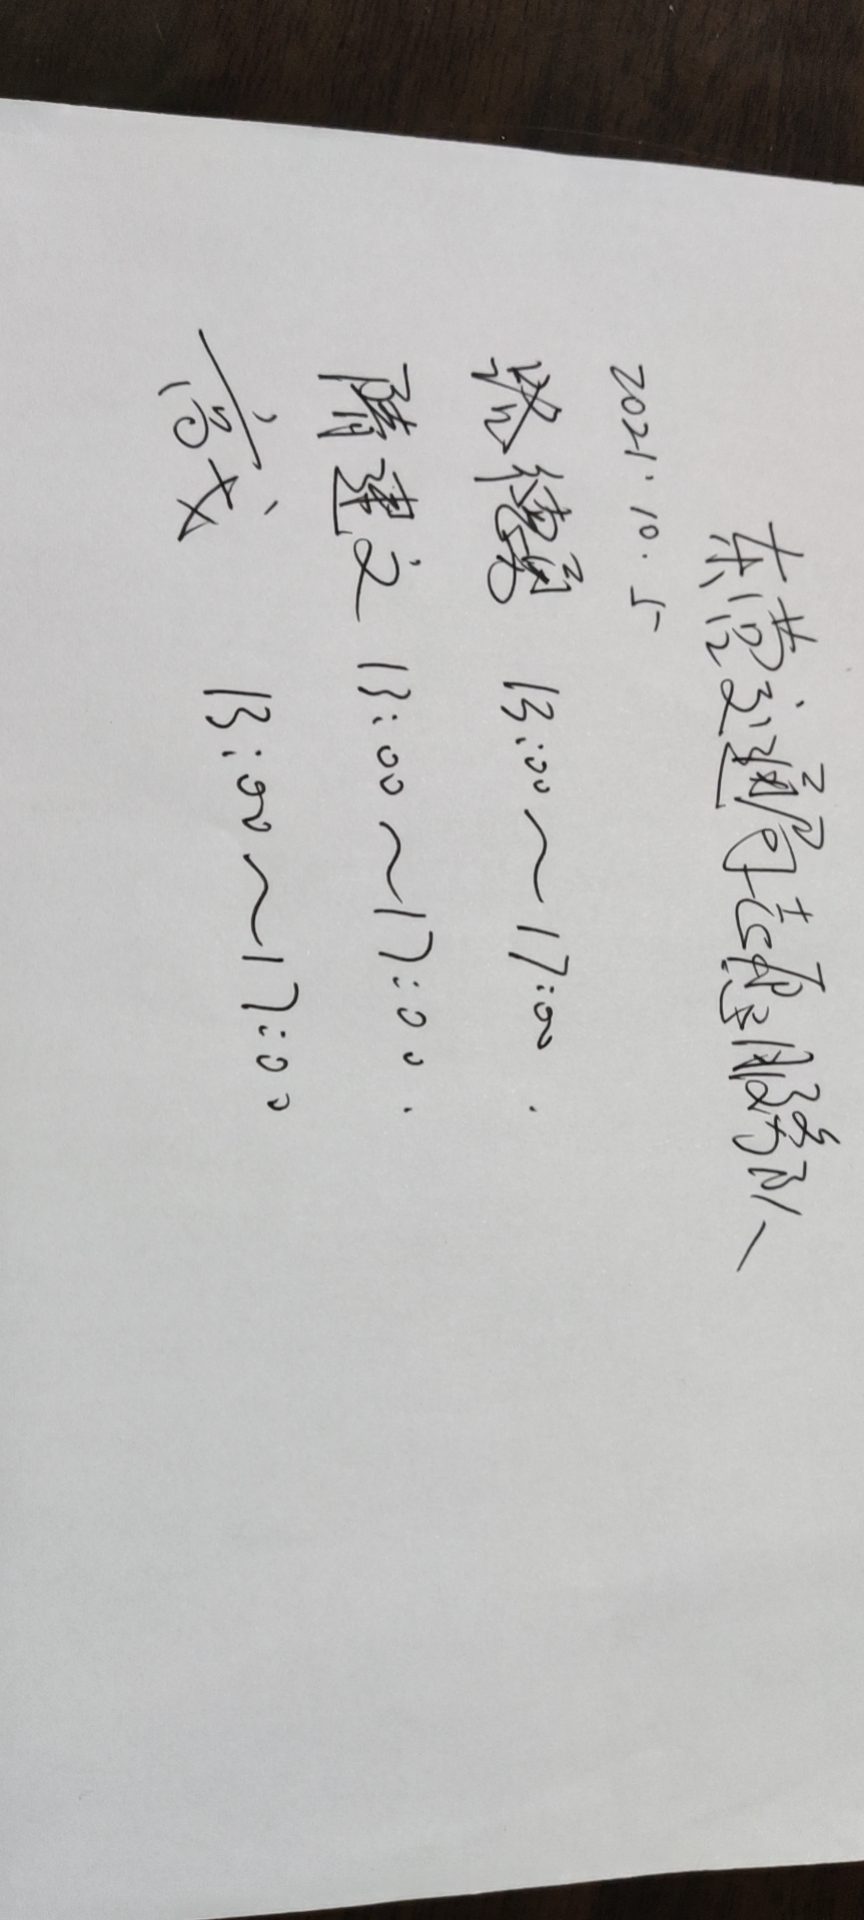 东营交通局志愿服务队
2021.10.5
德勇 13:00～17:00.
隋建文 13:00～17:00.
高戈 13:00～17:00